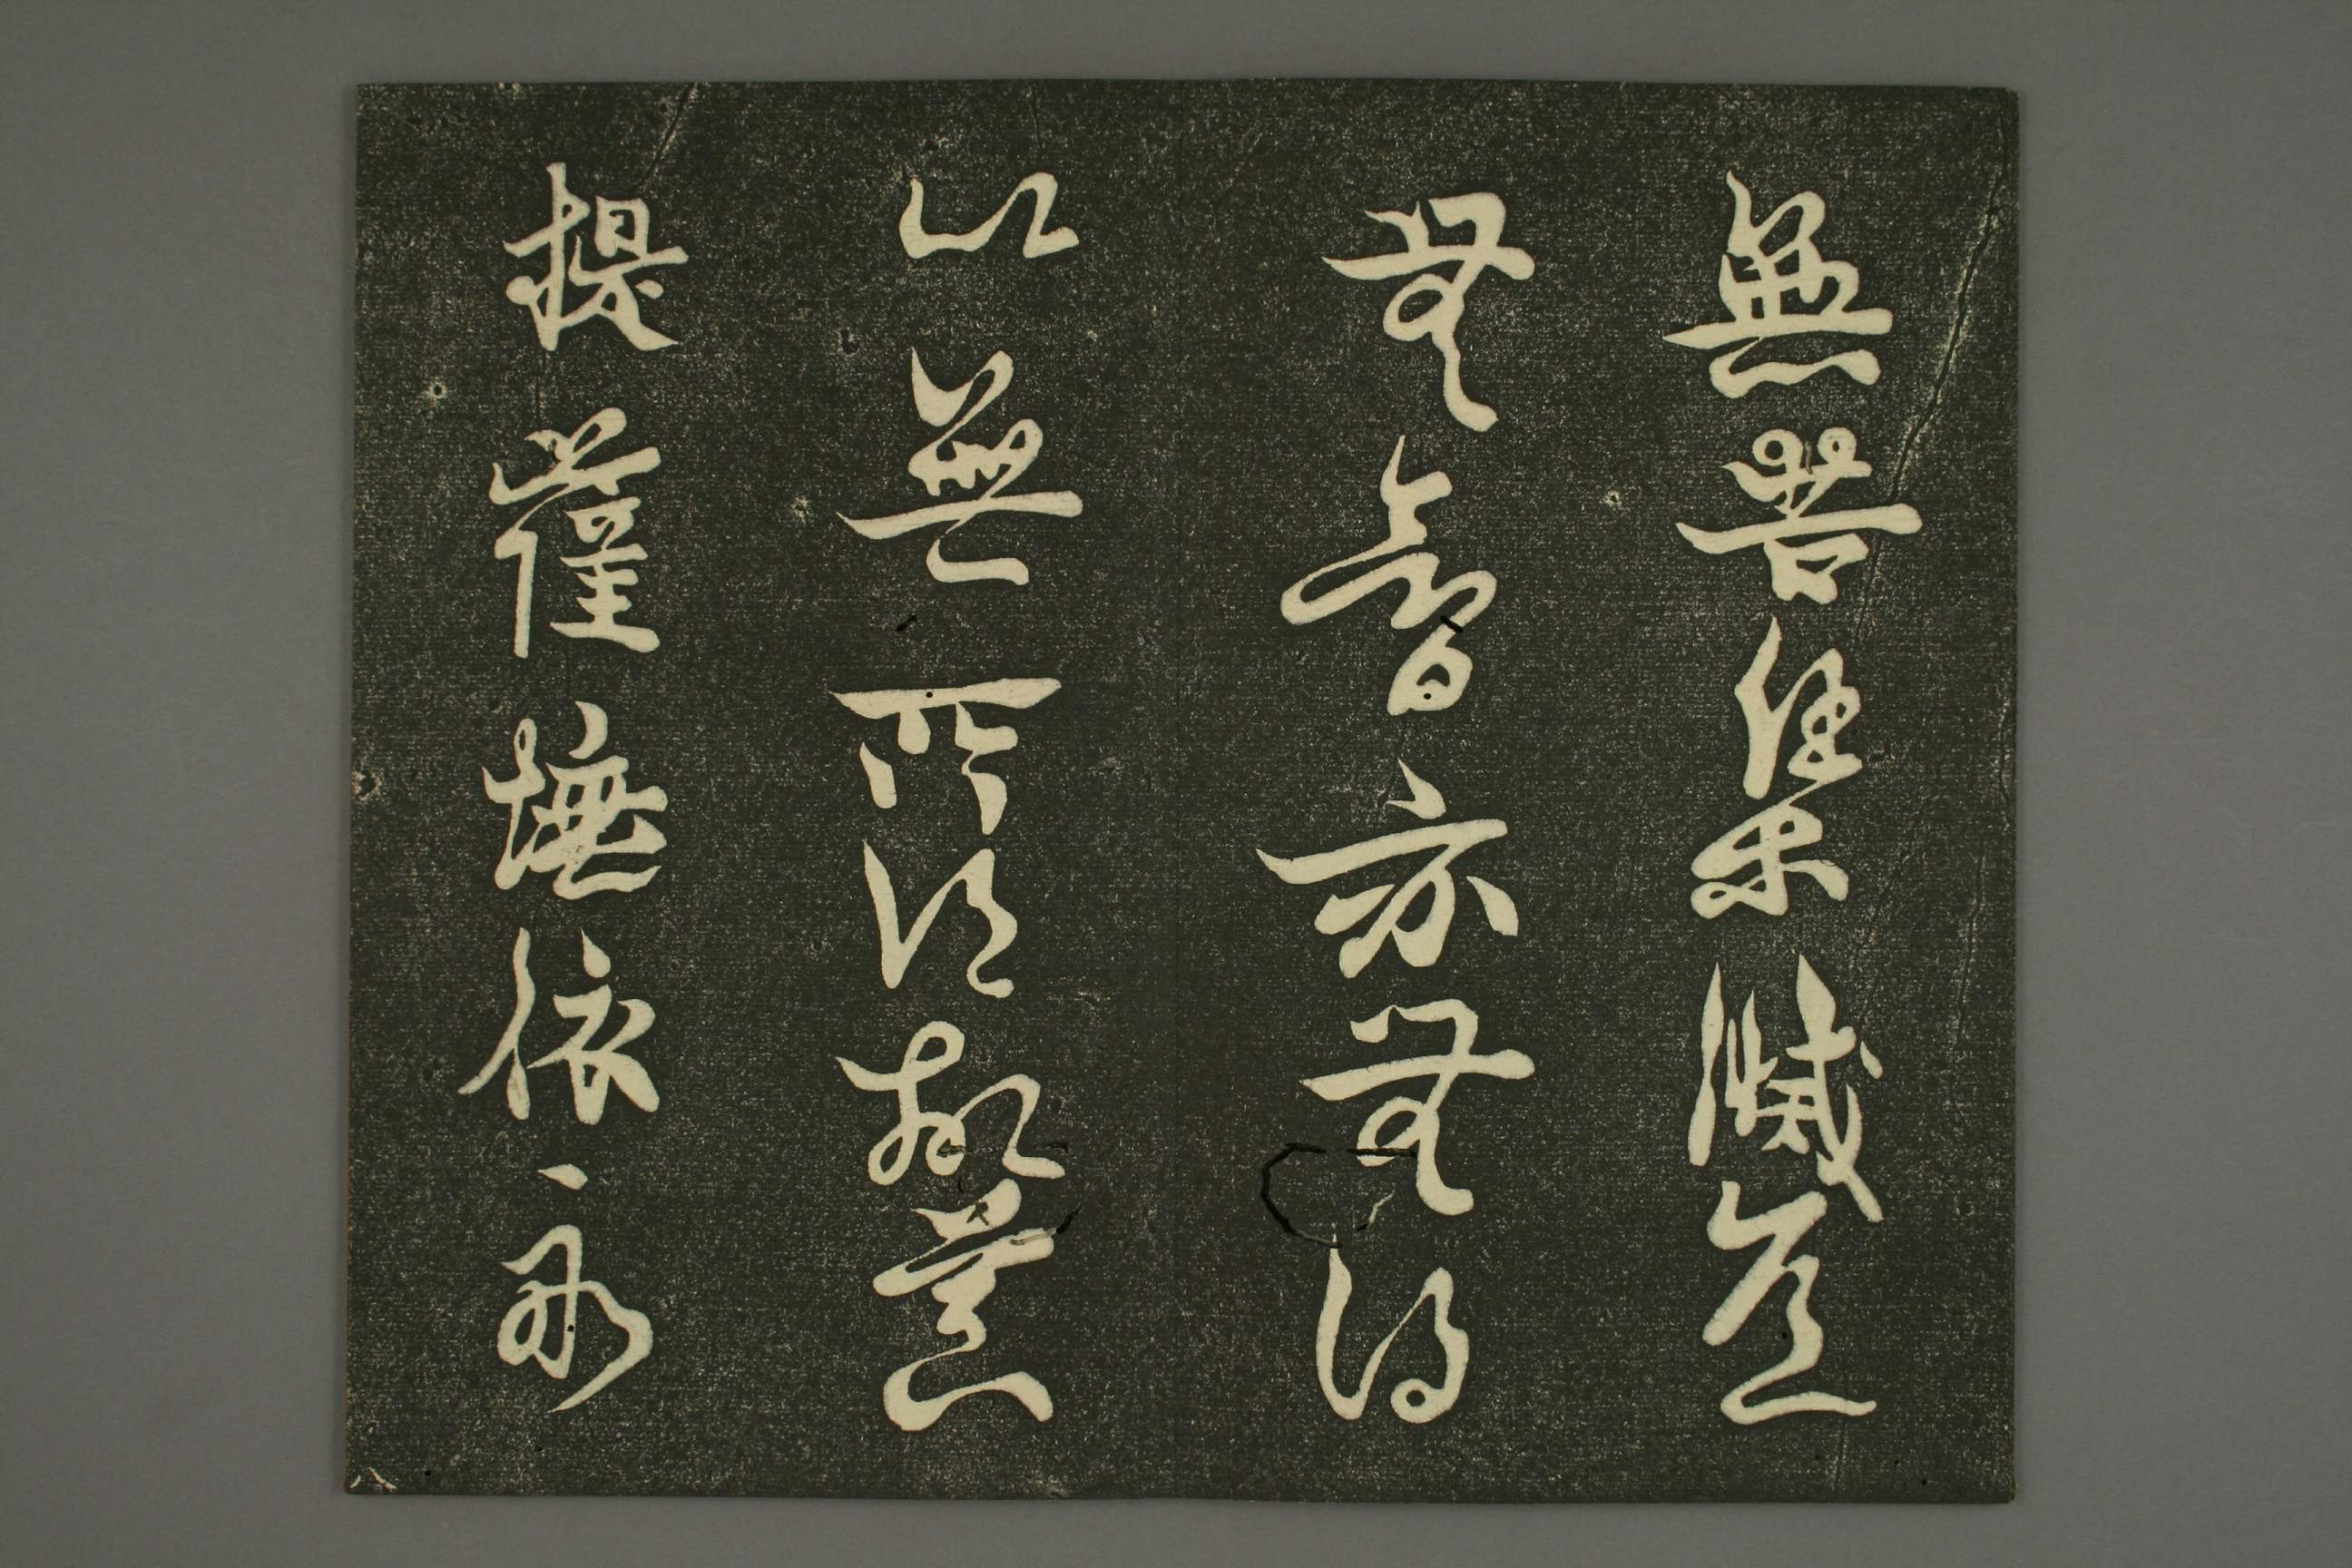 無苦集滅道
無智亦無得
以無所得故菩
提薩埵依般